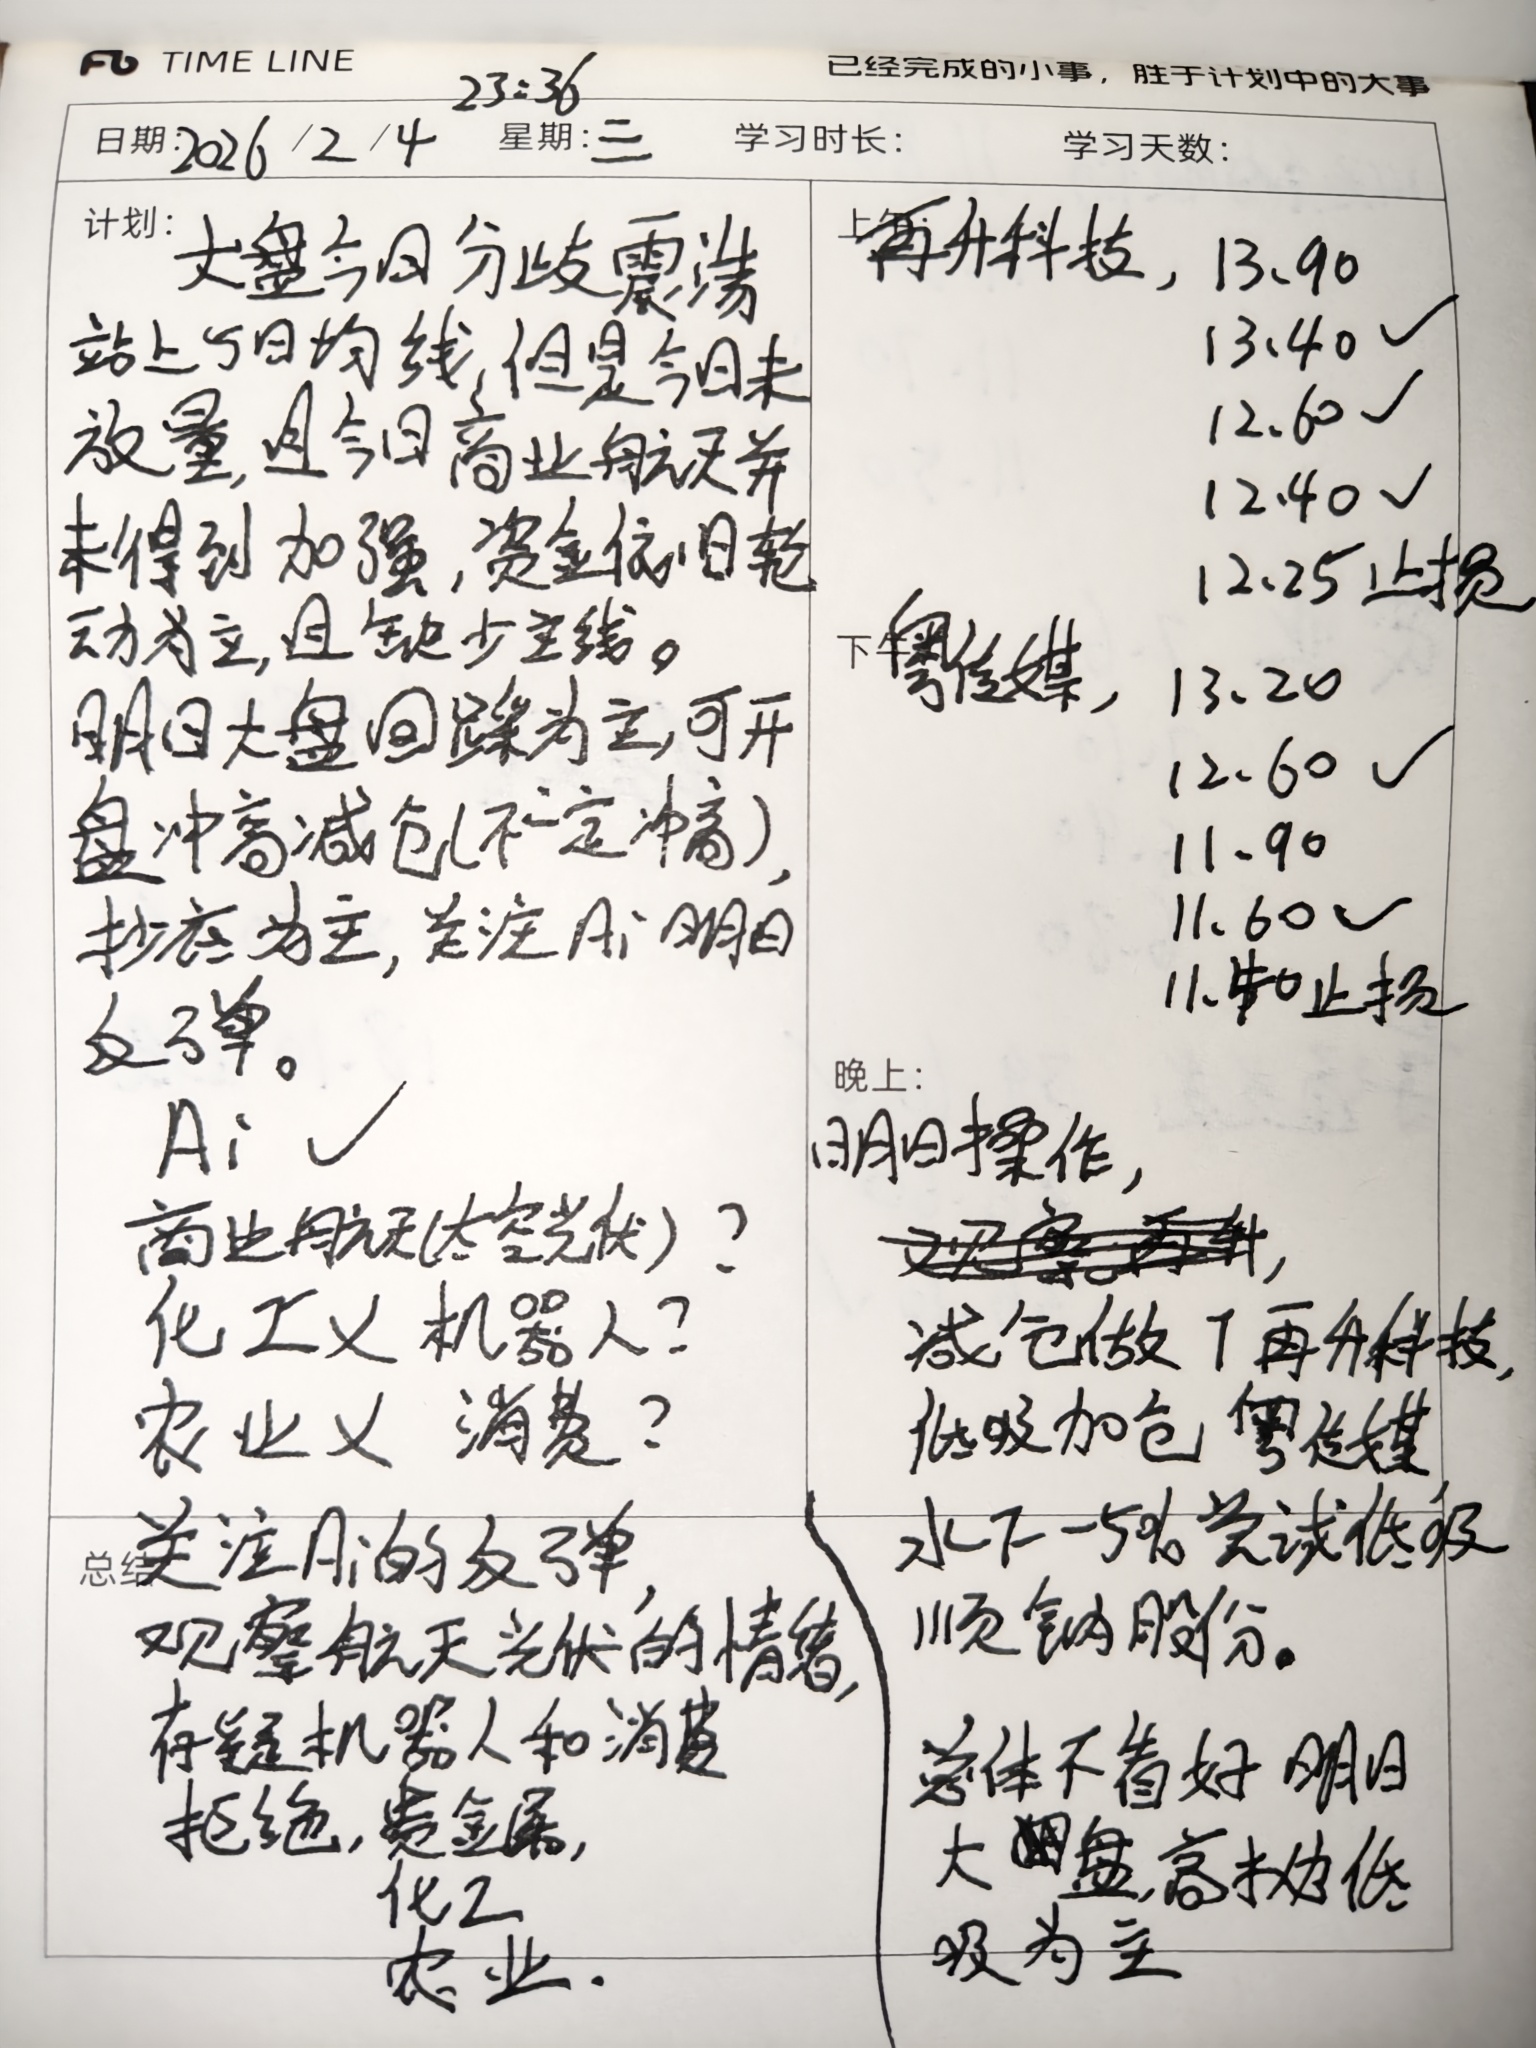 TIME LINE
已经完成的小事，胜于计划中的大事
23:36
日期：2026/2/4 星期：三 学习时长： 学习天数：
计划：
大盘今日分歧震荡
站上5日均线，但是今日未
放量，且今日商业航天并
未得到加强，资金依旧轮
动为主，且缺少主线。
明日大盘回踩为主，可开
盘冲高减仓(不一定冲高)，
抄底为主，关注Ai明日
反弹。
Ai ✓
商业航天(太空光伏)？
化工 ㄨ 机器人？
农业 ㄨ 消费？
总结
关注Ai的反弹，
观察航天光伏的情绪，
存疑机器人和消费
拒绝，贵金属，
化工
农业.
上午：
再升科技，13.90
13.40 ✓
12.60 ✓
12.40 ✓
12.25止损
下午
粤传媒，13.20
12.60 ✓
11.90
11.60 ✓
11.40止损
晚上：
明日操作，
观察再升，
减仓做T再升科技，
低吸加仓粤传媒
水下-5%尝试低吸
顺钠股份。
总体不看好明日
大盘，高抛低
吸为主